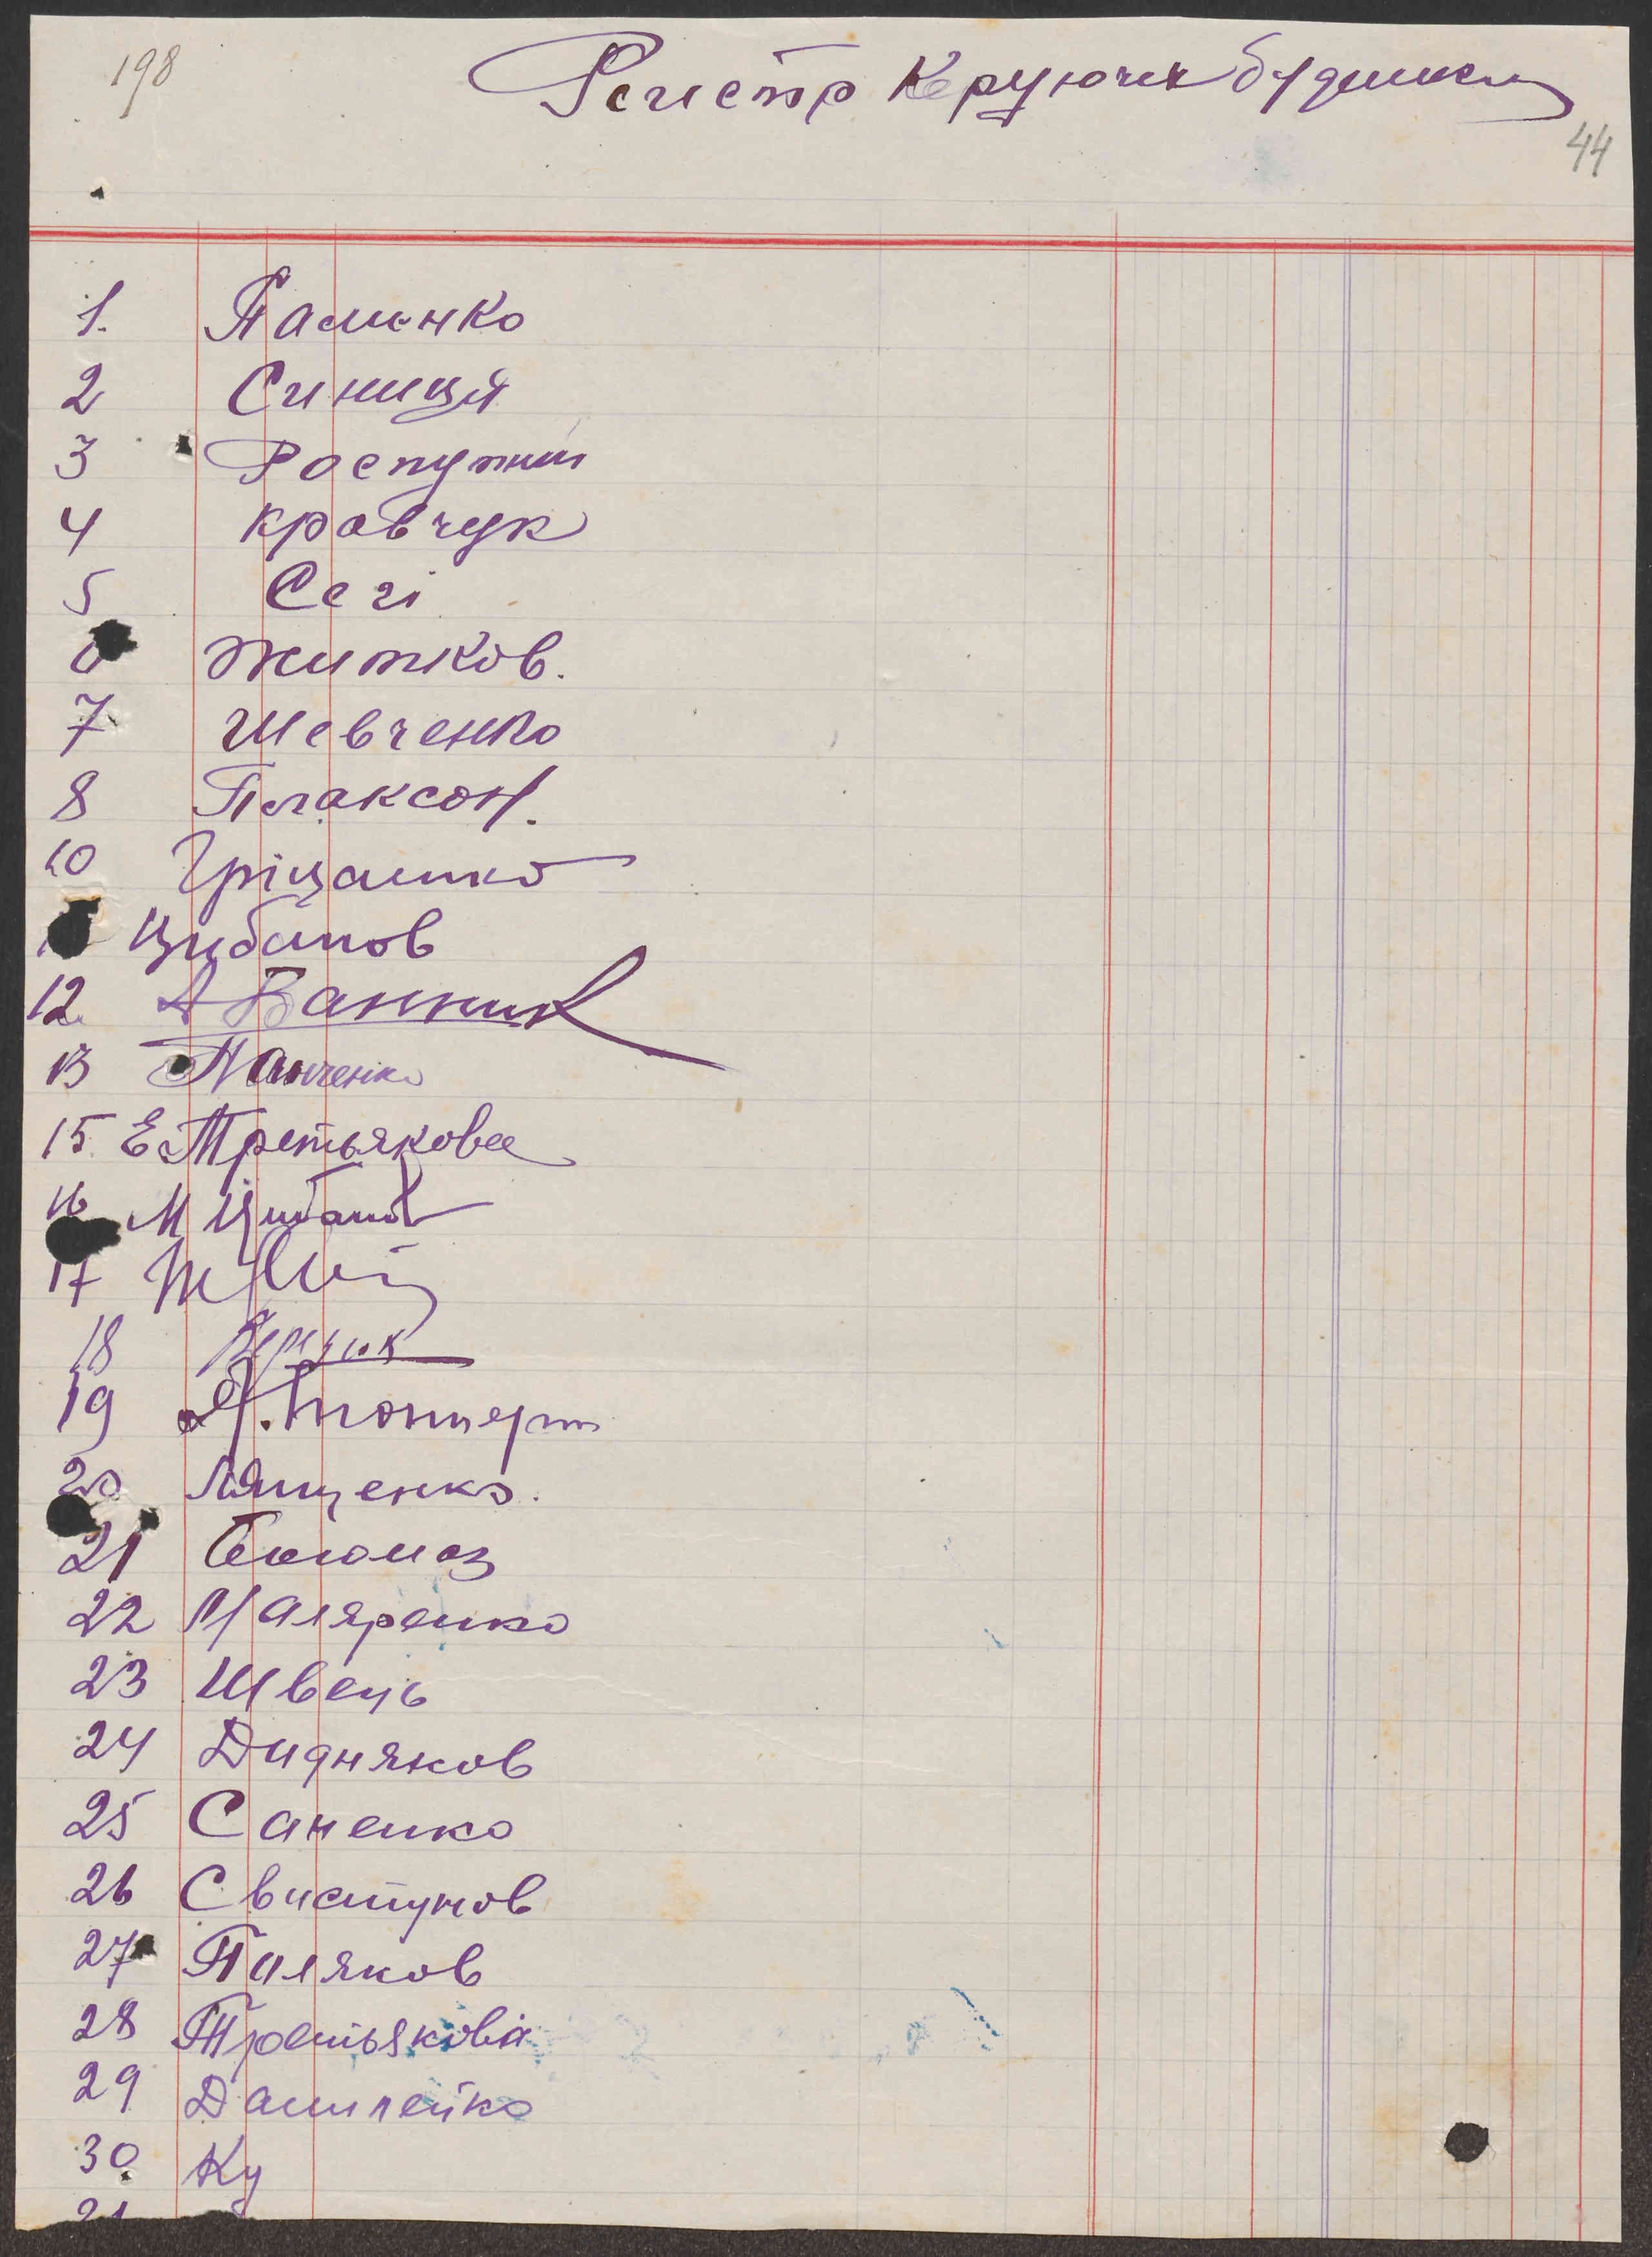 198
Реистр Керуючих будинками
44
1. Паленко
2 Синиця
3 Роспутний
4 Кравчук
5 Сегі
6 Житков.
7 Шевченко
8 Плаксон.
10 Гріцаенко
Цибанов
12 А Ванник
13 Панченко
15 Е Третьякова
16 М Цибанов
17
18
19
20 Лященко.
21
22 Маляренко
23 Швець
24 Дидняков
25 Саненко
26 Свистунов
27 Паляков
28 Третьякова
29 Данилейко
30 Ку
31